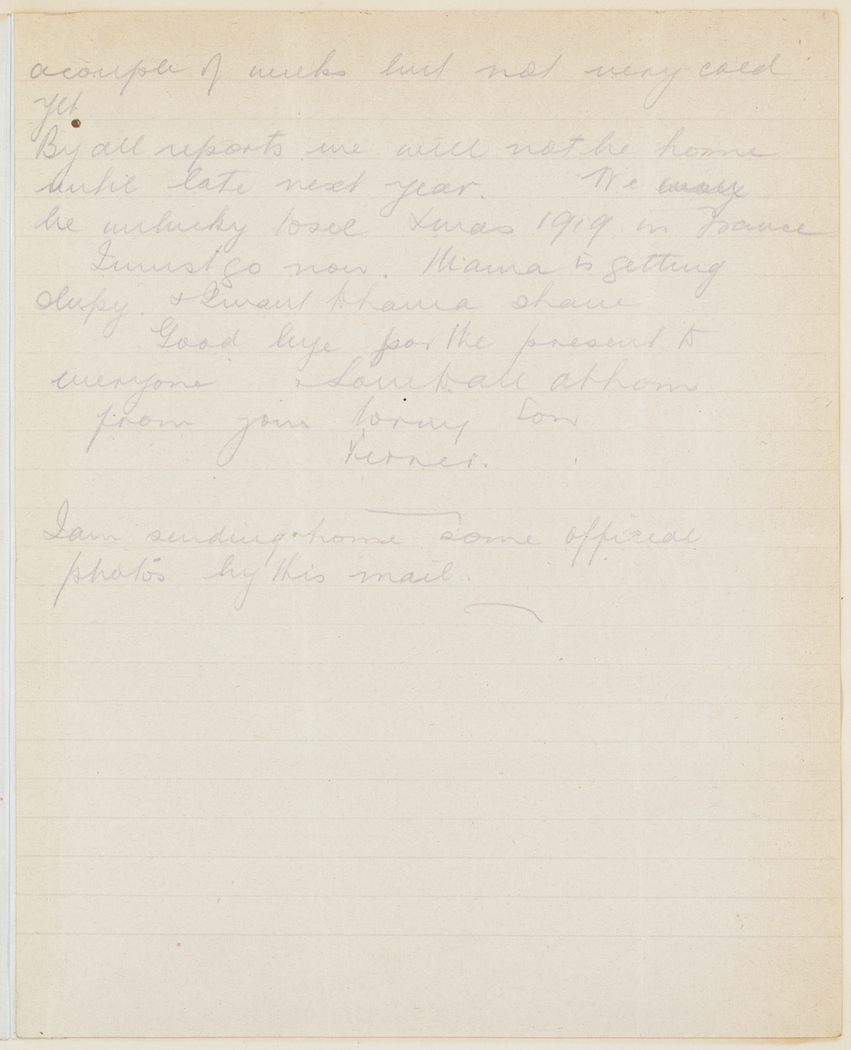 a couple of weeks but not very cold
yet
By all reports we will not be home
until late next year. We may
be unlucky to see Xmas 1919 in France
I must go now. Mama is getting
& I want to have a shave
Good bye for the present to
everyone & Love to all at home
from your loving Son
I am sending home some official
photos by this mail.